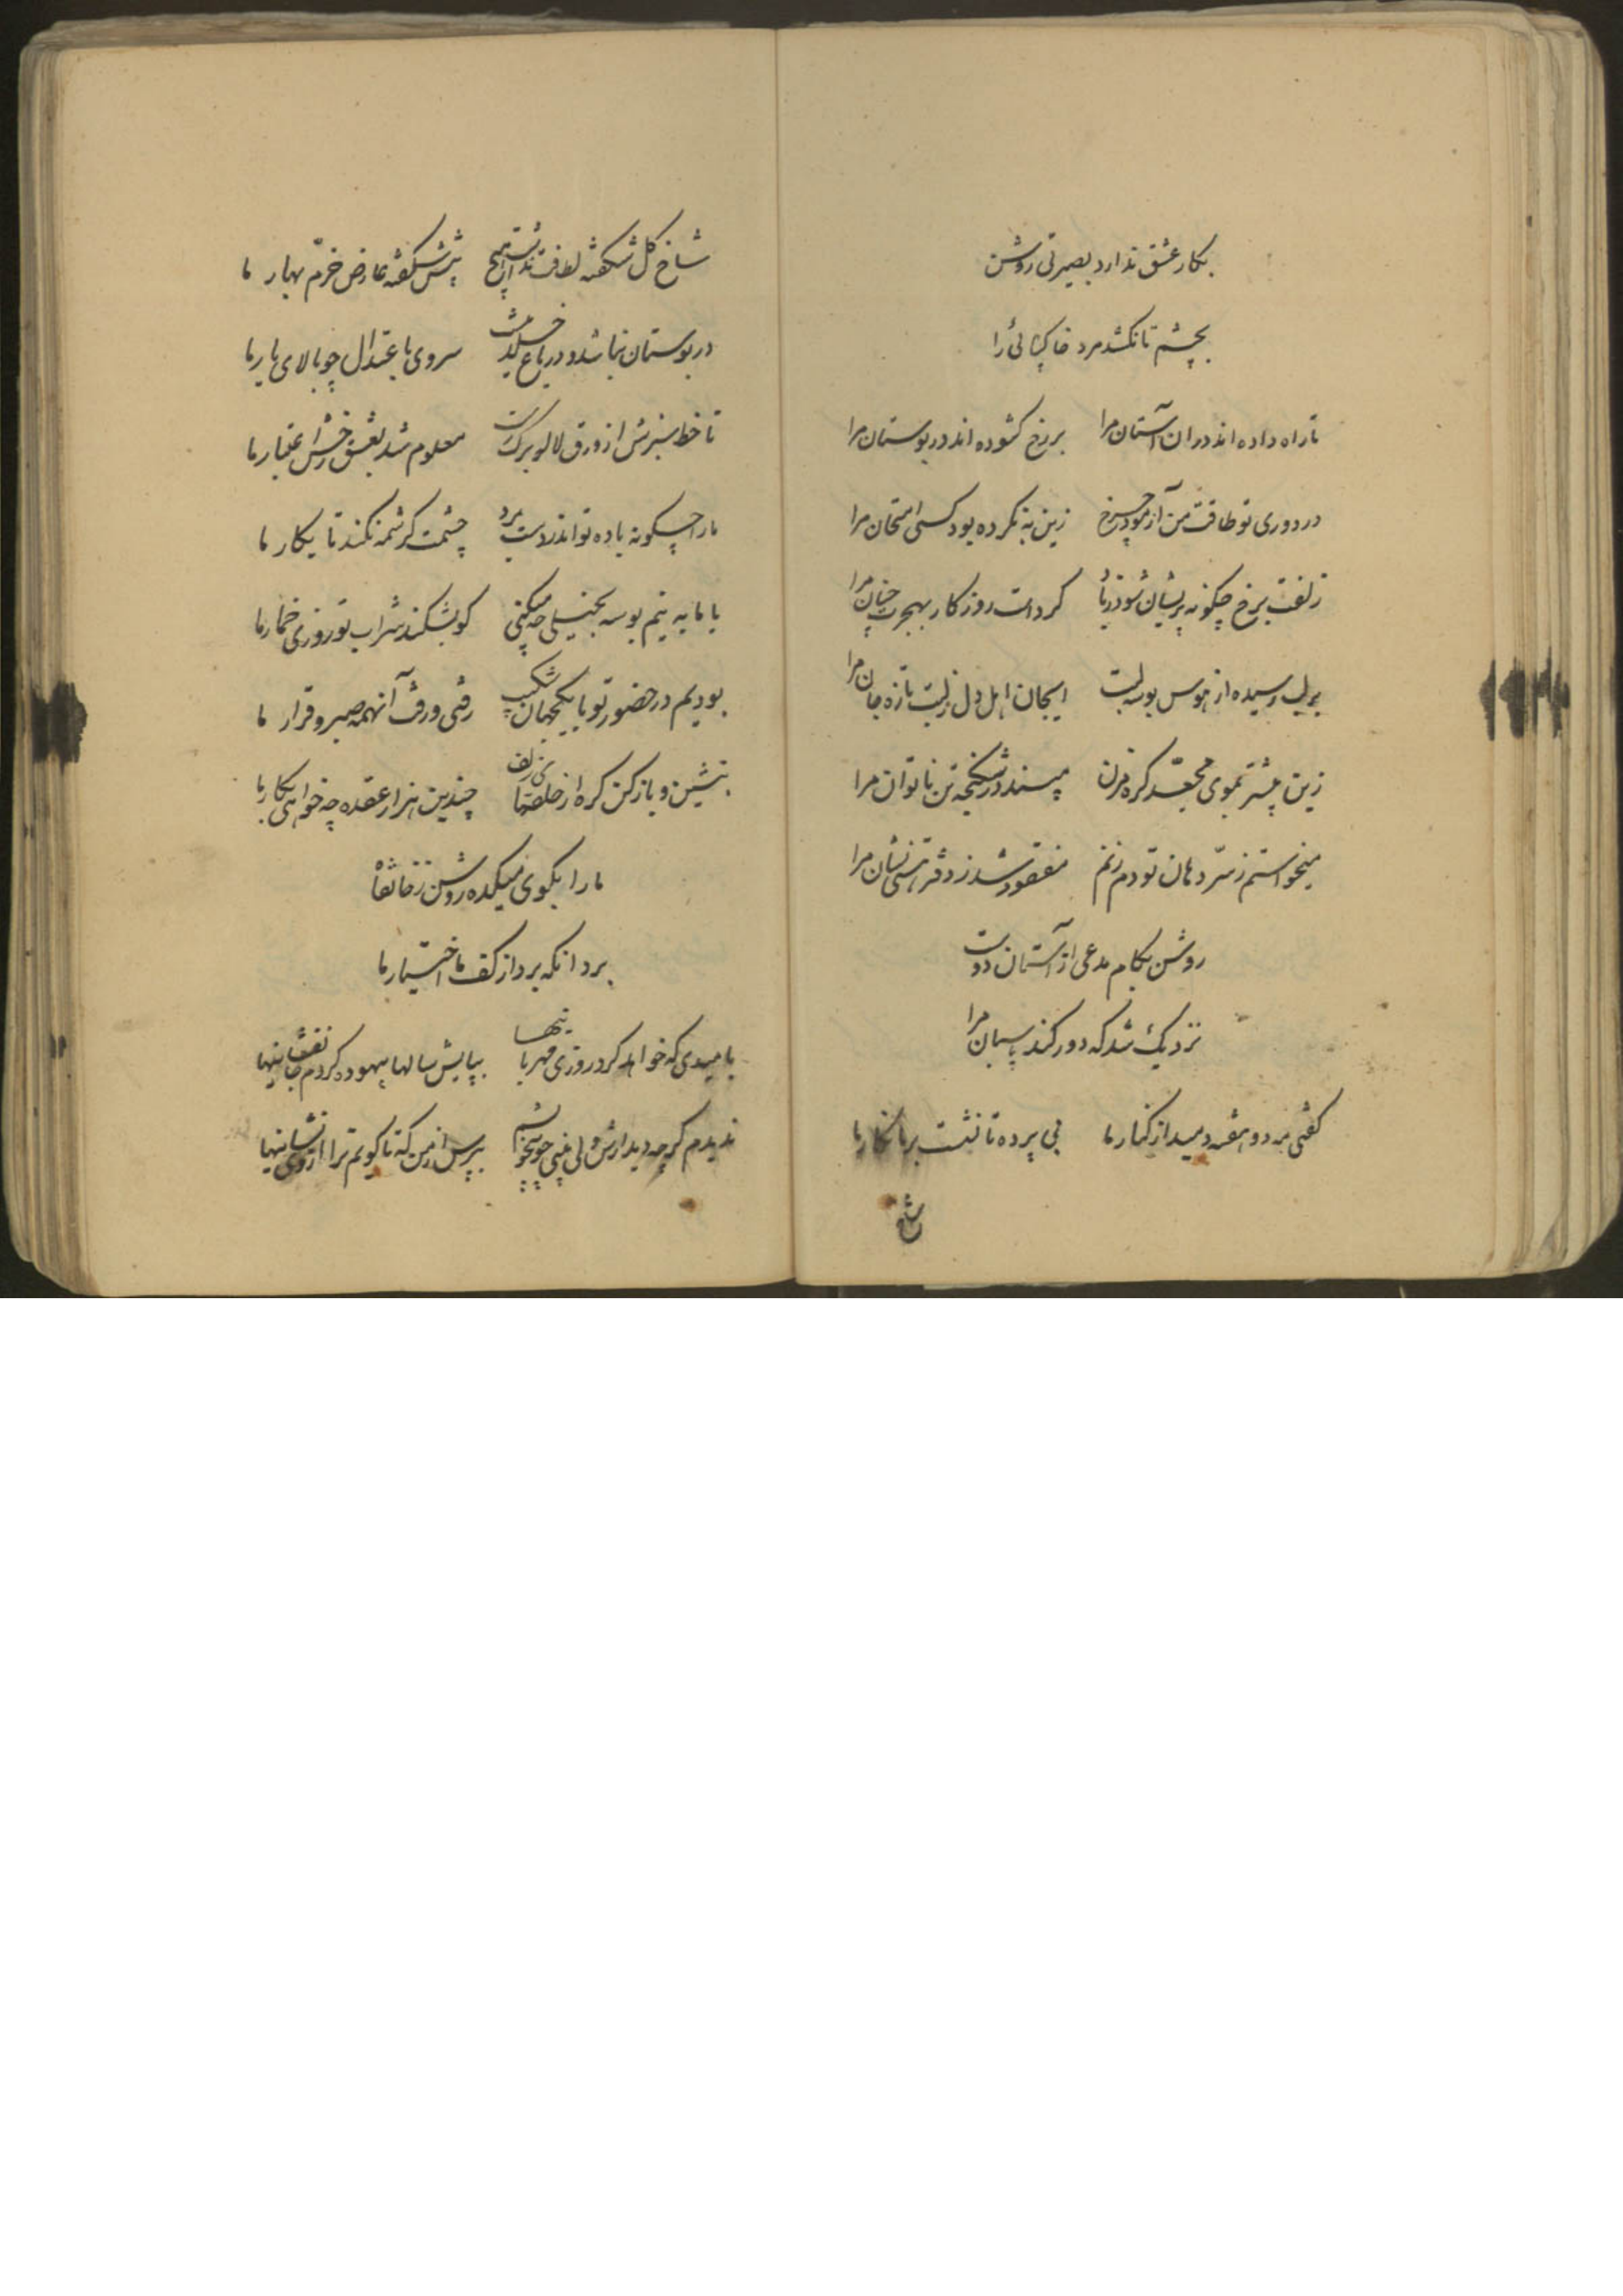 بکار عشق ندارد بصیرتی روشن
بچشم تا نکشد مرد خاکپائی را
تا راه داده اند در ان آستان مرا برزخ کشوده اند در بوستان مرا
در دوری تو طاقت من آزمود چرخ زین به نکرده بود کسی امتحان مرا
زلفت برخ چکونه پریشان شود ز باد کرد است روزکار بهجرت چنان مرا
بر لب رسیده از هوس بوسه لبت ایجان اهل دل ز لبت تازه جان مرا
زین پیشتر بموی مجعّد کره مزن مپسند در شکنجه تن ناتوان مرا
میخواستم ز سرّ دهان تو دم زنم مفقود شد ز دفتر هستی نشان مرا
روشن بکام مدعی از آستان دوست
نزدیک شد که دور کند پاسبان مرا
کفتی مه دو هفته دمید از کنار ما بی پرده تا نشست بر ما نکار ما
شاخ
شاخ کل شکفته لطافت نداشت هیچ پیش شکفته عارض خرّم بهار ما
در بوستان نباشد و در باغ خلد سروی باعتدال چو بالای یار ما
تا خط سبزش از ورق لاله برک رست معلوم شد بعشق رخش اعتبار ما
ما را چکونه باده تواند ز دست برد چشمت کرشمه نکند تا بکار ما
با ما به نیم بوسه بخیلی چه میکنی کو بشکند شراب تو روزی خمار ما
بودیم در حضور تو با یکجهان شکیب رفتی و رفت آنهمه صبر و قرار ما
بنشین و باز کن کره از حلقهای زلف چندین هزار عقده چه خواهی بکار ما
ما را بکوی میکده روشن ز خانقاه
برد انکه برد از کف ما اختیار ما
بامیدی که خواهد کرد روزی مهربانیها بپایش سالها بیهوده کردم جانفشانیها
ندیدم کرچه دیدارش ولی بپرس از من که تا کویم ترا از وی نشانیها